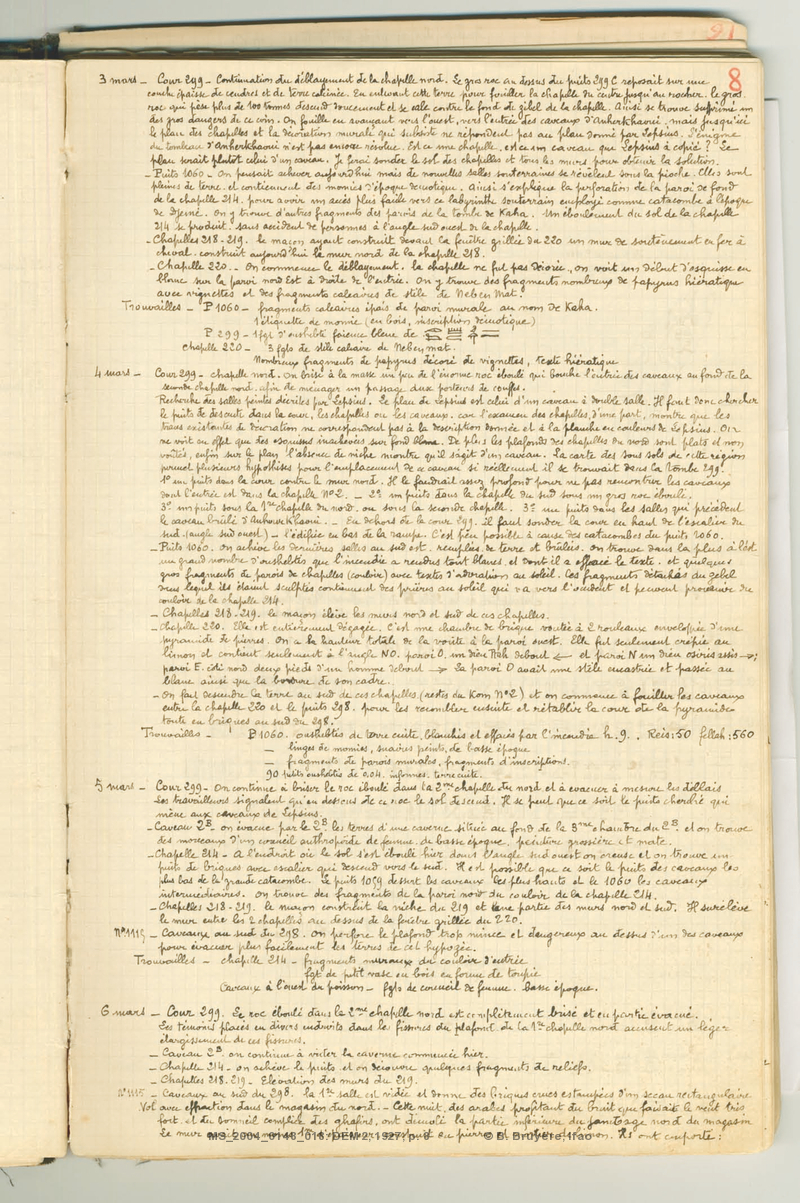 8
3 mars — Cour 299 – Continuation du déblayement de la chapelle nord. Le gros roc au dessus du puits 299 C reposait sur une
couche épaisse de cendres et de terre calcinée. En enlevant cette terre pour fouiller la chapelle du centre jusqu'au rocher, le gros
roc qui pèse plus de 100 tonnes descend doucement et se cale contre le fond de gebel de la chapelle. Ainsi se trouve supprimé un
des gros dangers de ce coin. On fouille en avançant vers l'ouest, vers l'entrée des caveaux d'Anherkhaoui, mais jusqu'ici
le plan des chapelles et la décoration murale qui subsiste ne répondent pas au plan donné par Lepsius. L'énigme
du tombeau d'Anherkhaoui n'est pas encore résolue. Est-ce une chapelle, est-ce un caveau que Lepsius a copié ? Le
plan serait plutôt celui d'un caveau. Je ferai sonder le sol des chapelles et tous les murs pour obtenir la solution.
– Puits 1060 – On pensait achever aujourd'hui mais de nouvelles salles souterraines se révèlent sous la pioche. Elles sont
pleines de terre et contiennent des momies d'époque démotique. Ainsi s'explique la perforation de la paroi de fond
de la chapelle 214 pour avoir un accès plus facile vers ce labyrinthe souterrain employé comme catacombe à l'époque
de Djemé. On y trouve d'autres fragments des parois de la tombe de Kaha. Un éboulement du sol de la chapelle
214 se produit sans accident de personnes à l'angle sud ouest de la chapelle.
– Chapelles 218-219. le maçon ayant construit devant la fenêtre grillée du 220 un mur de soutènement en fer à
cheval, construit aujourd'hui le mur nord de la chapelle 218.
– Chapelle 220. – On commence le déblayement. la chapelle ne fut pas décorée, on voit un début d'esquisse en
blanc sur la paroi nord Est à droite de l'entrée. On y trouve des fragments nombreux de papyrus hiératique
avec vignettes et des fragments calcaires de stèle de Neben Mat.
Trouvailles – P 1060 – fragments calcaires épais de paroi murale au nom de Kaha.
1 étiquette de momie (en bois, inscription démotique)
P 299 – 1 fgt d'oushebti faïence bleue de
Chapelle 220 – 3 fgts de stèle calcaire de Neben mat.
Nombreux fragments de papyrus décoré de vignettes, texte hiératique
4 mars – Cour 299 – chapelle nord. On brise à la masse un peu de l'énorme roc éboulé qui bouche l'entrée des caveaux au fond de la
seconde chapelle nord, afin de ménager un passage aux porteurs de couffes.
Recherche des salles peintes décrites par Lepsius. Le plan de Lepsius est celui d'un caveau à double salle. Il faut donc chercher
le puits de descente dans la cour, les chapelles ou les caveaux. car l'examen des chapelles, d'une part, montre que les
traces existantes de décoration ne correspondent pas à la description donnée et à la planche en couleurs de Lepsius. On
ne voit en effet que des esquisses inachevées sur fond blanc. De plus les plafonds des chapelles du nord sont plats et non
voûtés, enfin sur le plan l'absence de niche montre qu'il s'agit d'un caveau. La carte des sous sols de cette région
permet plusieurs hypothèses pour l'emplacement de ce caveau si réellement il se trouvait dans la tombe 299.
1° un puits dans la cour contre le mur nord. Il le faudrait assez profond pour ne pas rencontrer les caveaux
dont l'entrée est dans la chapelle N°2. – 2° un puits dans la chapelle du sud sous un gros roc éboulé.
3° un puits sous la 1ère chapelle du nord, ou sous la seconde chapelle. 3° un puits dans les salles qui précèdent
le caveau brûlé d'Anherkhaoui. – En dehors de la cour 299. il faut sonder la cour en haut de l'escalier du
sud. (angle sud ouest) – l'édifice en bas de la rampe. C'est peu possible à cause des catacombes du puits 1060.
– Puits 1060. on achève les dernières salles au sud est, remplies de terre et brûlées. on trouve dans la plus à l'est
un grand nombre d'oushebtis que l'incendie a rendus tout blancs, et dont il a effacé le texte. et quelques
gros fragments de parois de chapelles (couloir) avec textes d'adoration au soleil. Ces fragments détachés au gebel
dans lequel ils étaient sculptés contiennent des prières au soleil qui va vers l'occident et peuvent provenir du
couloir de la chapelle 214.
– Chapelles 218-219. le maçon élève les murs nord et sud de ces chapelles.
– Chapelle 220. Elle est entièrement dégagée. C'est une chambre de brique voûtée à 2 rouleaux enveloppée d'une
pyramide de pierres. On a la hauteur totale de la voûte à la paroi ouest. Elle fut seulement crépie au
limon et contient seulement à l'angle NO. paroi O, un dieu Ptah debout ← et paroi N un dieu osiris assis →;
paroi E. côté nord deux pieds d'un homme debout → La paroi O avait une stèle encastrée et passée au
blanc ainsi que la bordure de son cadre.
– On fait descendre la terre au sud de ces chapelles (restes du Kom N°2) et on commence à fouiller les caveaux
entre la chapelle 220 et le puits 298. pour les recombler ensuite et rétablir la cour de la pyramide
toute en briques au sud du 298.
Trouvailles – P 1060. oushebtis de terre cuite, blanchis et effacés par l'incendie h. 9. . Reis: 50 fellah: 560
– linges de momies, suaires peints, de basse époque
– fragments de parois murales, fragments d'inscriptions.
90 petits oushebtis de 0,04. informes. terre cuite.
5 mars – Cour 299 – On continue à briser le roc éboulé dans la 2ème chapelle du nord et à évacuer à mesure les déblais
Les travailleurs signalent qu'en dessous de ce roc le sol descend. Il se peut que ce soit le puits cherché qui
mène aux caveaux de Lepsius.
– Caveau 2B. on évacue par le 2B les terres d'une caverne située au fond de la 3ème chambre du 2B. et on trouve
des morceaux d'un cercueil anthropoïde de femme, de basse époque, peinture grossière et mate.
– Chapelle 214 – A l'endroit où le sol s'est éboulé hier dans l'angle sud ouest on creuse et on trouve un
puits de briques avec escalier qui descend vers le sud. Il est possible que ce soit le puits des caveaux les
plus bas de la grande catacombe. Le puits 1059 dessert les caveaux les plus hauts et le 1060 les caveaux
intermédiaires. on trouve des fragments de la paroi nord du couloir de la chapelle 214.
– Chapelles 218-219. le maçon construit la niche du 219 et une partie des murs nord et sud. Il surélève
le mur entre les 2 chapelles au dessus de la fenêtre grillée du 220.
N°1115 – Caveaux au sud du 298. On perfore le plafond trop mince et dangereux au dessus d'un des caveaux
pour évacuer plus facilement les terres de cet hypogée.
Trouvailles – chapelle 214 – fragments muraux du couloir d'entrée
fgt de petit vase en bois en forme de toupie
Caveaux à l'ouest du poisson – fgts de cercueil de femme. basse époque.
6 mars – Cour 299. Le roc éboulé dans la 2ème chapelle nord est complètement brisé et en partie évacué.
Les témoins placés en divers endroits dans les fissures du plafond de la 1ère chapelle nord accusent un léger
élargissement de ces fissures.
– Caveau 2B. on continue à vider la caverne commencée hier.
– Chapelle 214 – on achève le puits et on découvre quelques fragments de reliefs.
– Chapelles 218-219 – Elévation des murs du 219.
N°1115 – Caveaux au sud du 298. la 1ère salle est vidée et donne des briques crues estampées d'un sceau rectangulaire
Vol avec effraction dans le magasin du nord. – Cette nuit, des arabes profitant du bruit que faisait le vent très
fort et du sommeil complice des ghafirs, ont démoli la partie inférieure du jambage nord du magasin
Ils ont emporté :
MS_2004_0148_018 DEM 2, 1927, p. 8 © B. Bruyère, Ifao